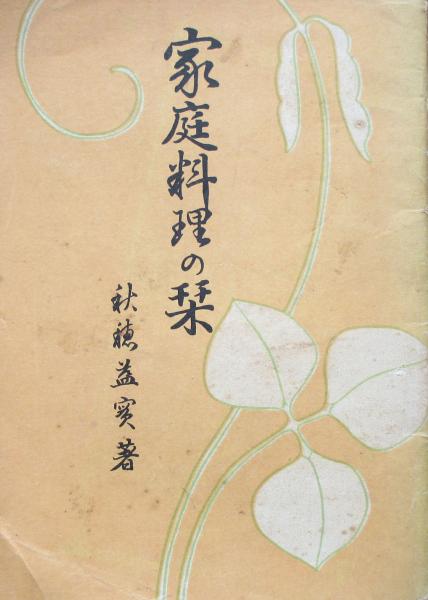 家庭料理の栞
秋穂益実著